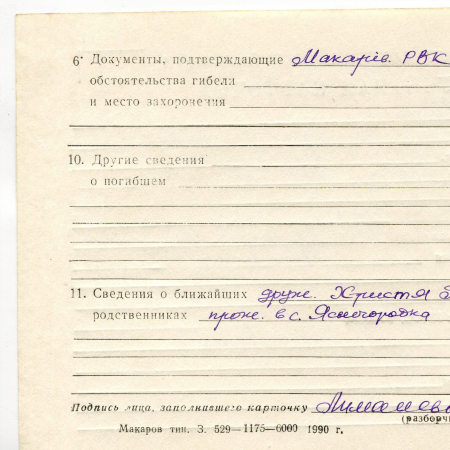 6· Документы, подтверждающие Макарів. РВК
обстоятельства гибели
и место захоронения
10. Другие сведения
о погибшем
11. Сведения о ближайших друж. Христя
родственниках прож. в с. Ясногородка
Подпись лица, заполнившего карточку
(разборч
Макаров тип. З. 529—1175—6000 1990 г.